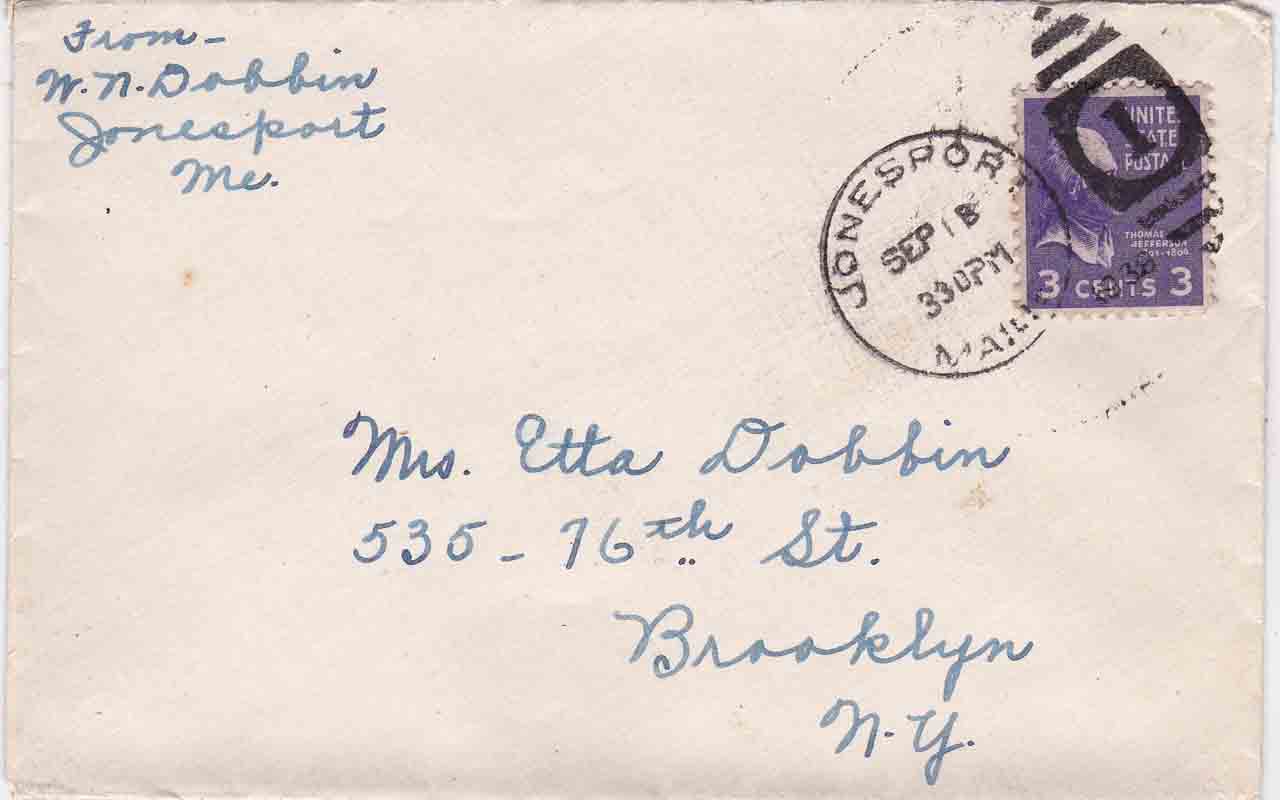 From-
W. N. Dobbin
Jonesport
Me.
JONESPORT
SEP 18
330PM
MAINE
1938
1
UNITED
STATES
POSTAGE
THOMAS
JEFFERSON
1801-1809
3 CENTS 3
Mrs. Etta Dobbin
535 - 76th St.
Brooklyn
N. Y.